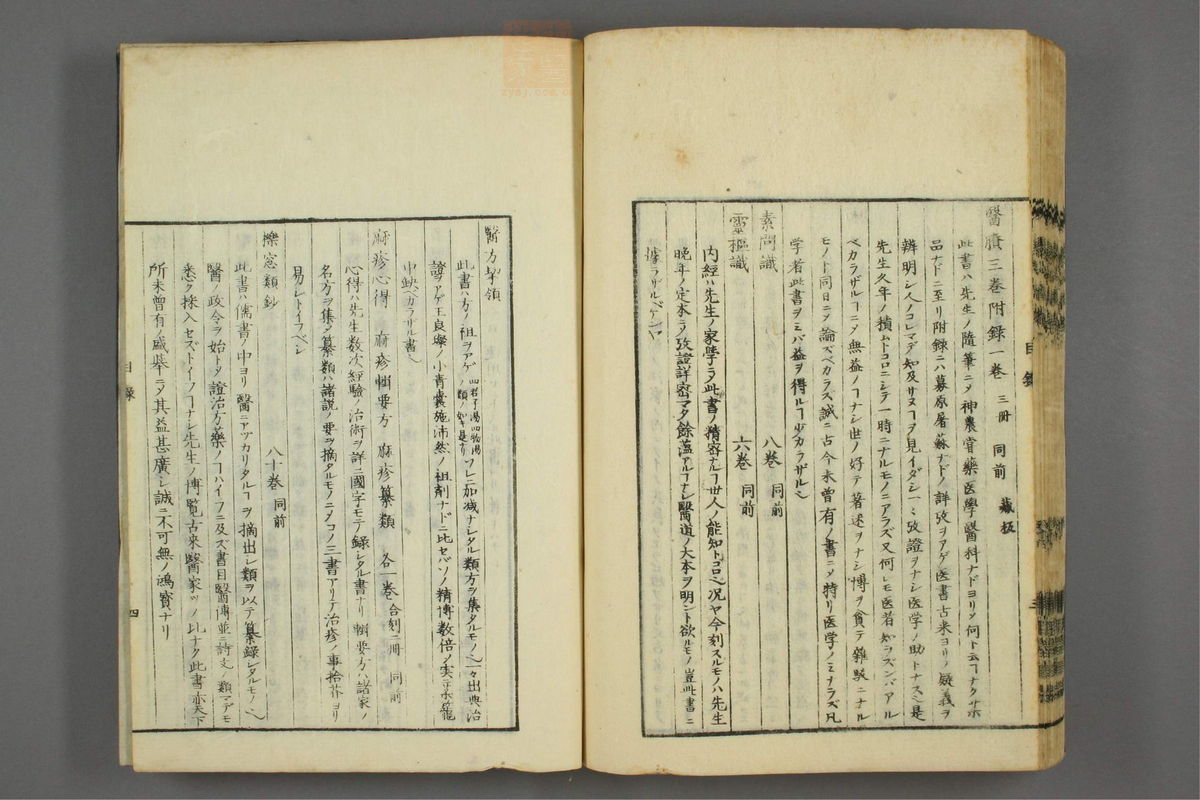 醫賸三巻附録一巻 三冊 同前 藏板
此書ハ先生ノ隨筆ニメ神農嘗藥医學醫科ナドヨリソ何ト云ヿナクサホ
品ナドニ至リ附録ニハ募原屠蘇ナドノ詳攷ヲアゲ医書古来ヨリノ疑義ヲ
辨明シ人ノコレマデ知及サヌヿヲ見イダシ一〻攷證ヲナシ医学ノ助トナス是
先生久年ノ積ムトコロニシテ一時ニナルモノニアラズ又何レモ医者知ラズンバアル
ベカラザルヿニメ無益ノヿナシ世ノ好テ著述ヲナシ博ヲ貪テ雜駁ニナル
モノト同日ニメ論ズベカラズ誠ニ古今未曽有ノ書ニメ特リ医学ノミナラズ凡
学者此書ヲミバ益ヲ得ルヿ少カラザルベシ
素問識 八巻 同前
靈樞識 六巻 同前
内經ハ先生ノ家學ニメ此書ノ精密ナルヿ世人ノ能知トコロ况ヤ今刻スルモノハ先生
晩年ノ定本ニメ攷證詳密マタ餘蘊アルヿナシ醫道ノ大本ヲ明ント欲ルモノ豈此書ニ
據ラザルベケンヤ
目録
三
醫方挈領
此書ハ方ノ祖ヲアゲ 四君子湯四物湯ノ類ノ如キ是ナリ ソレニ加减ナシタル類方ヲ集タルモノ一々出典治
證ヲアゲ王良璨ノ小青囊施沛然ノ祖剤ナドニ比セバソノ精博数倍ノ実ニ薬籠
中缺ベカラザル書
麻疹心得 麻疹輯要方 麻疹纂類 各一巻 合刻二冊 同前
心得ハ先生数次經驗ノ治術ヲ詳ニ國字モテ録シタル書ナリ輯要方ハ諸家ノ
名方ヲ集メ纂類ハ諸説ノ要ヲ摘タルモノニメコノ三書アリテ治疹ノ事拾芥ヨリ
易シトイフベシ
櫟窓類鈔 八十巻 同前
此書ハ儒書ノ中ヨリ醫ニアヅカリタルヿヲ摘出シ類ヲ以テ纂録シタルモノ
醫ノ政令ヲ始トメ證治方藥ノヿハイフニ及ズ書目醫傳並ニ詩文ノ類マデモ
悉ク採入セズトイフヿナシ先生ノ博覧古来醫家ソノ比ナク此書亦天下
所未曽有ノ盛擧ニメ其益甚廣シ誠ニ不可無ノ鴻寳ナリ
目録
四